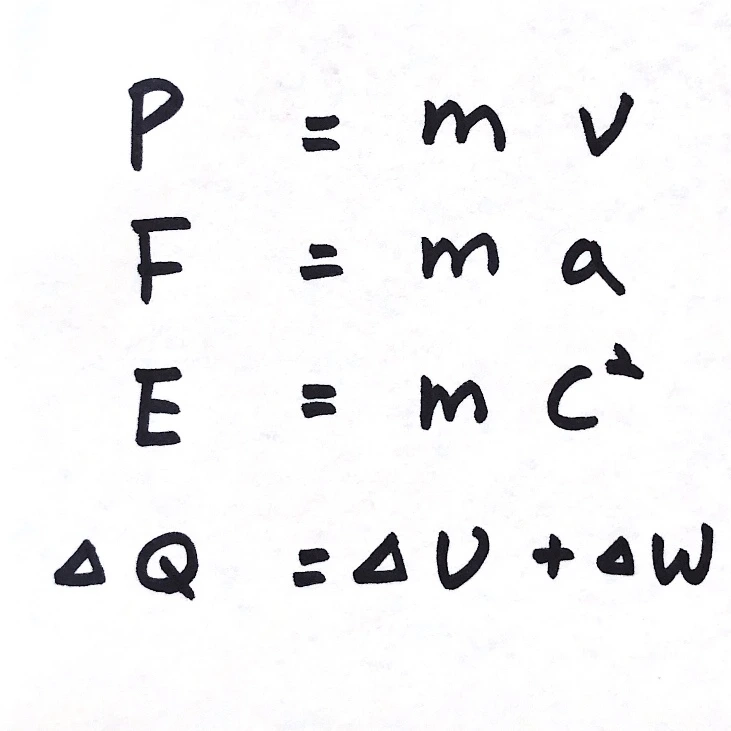 P = m v
F = m a
E = m c²
Δ Q = Δ U + Δ W